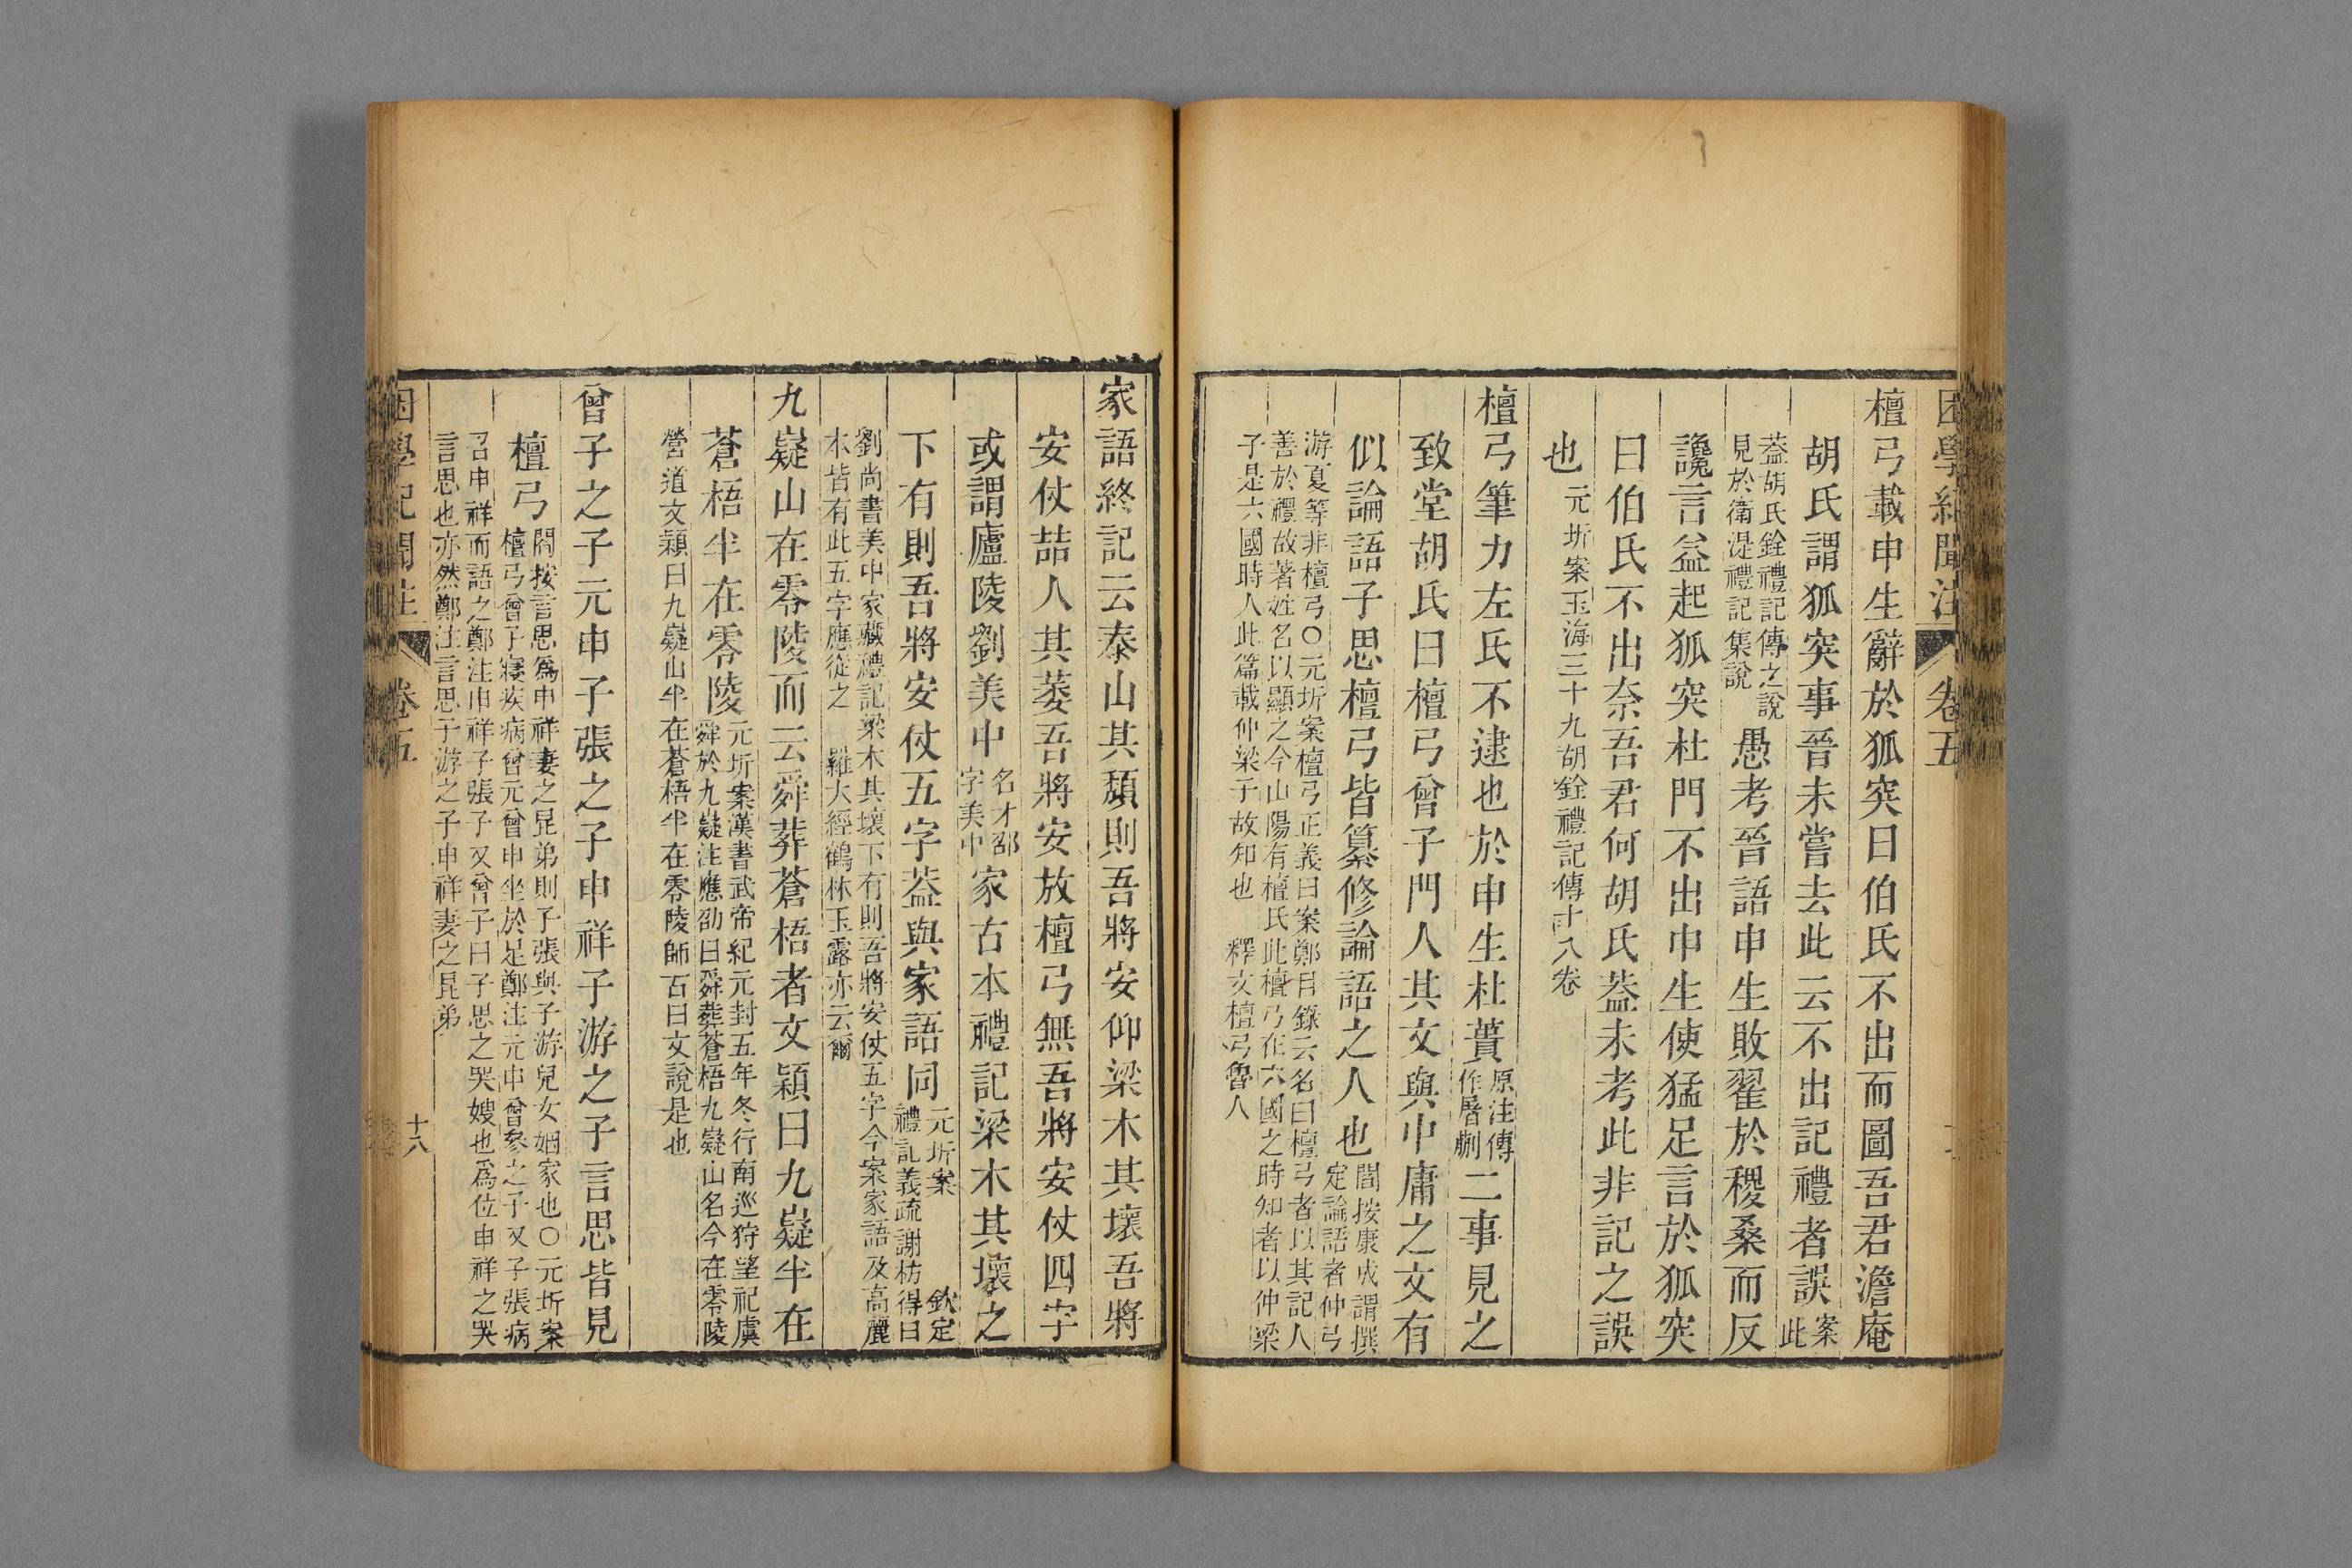 困學紀聞注 卷五
檀弓載申生辭於狐突曰伯氏不出而圖吾君澹庵
胡氏謂狐突事晉未嘗去此云不出記禮者誤案此
蓋胡氏銓禮記傳之說見於衛湜禮記集說愚考晉語申生敗翟於稷桑而反
讒言益起狐突杜門不出申生使猛足言於狐突
曰伯氏不出奈吾君何胡氏蓋未考此非記之誤
也元圻案玉海三十九胡銓禮記傳十八卷
檀弓筆力左氏不逮也於申生杜蕢原注傳作屠蒯二事見之
致堂胡氏曰檀弓曾子門人其文與中庸之文有
似論語子思檀弓皆纂修論語之人也閻按康成謂撰定論語者仲弓
游夏等非檀弓〇元圻案檀弓正義曰案鄭目錄云名曰檀弓者以其記人
善於禮故著姓名以顯之今山陽有檀氏此檀弓在六國之時知者以仲梁
子是六國時人此篇載仲梁子故知也 釋文檀弓魯人
家語終記云泰山其頹則吾將安仰梁木其壞吾將
安仗喆人其萎吾將安放檀弓無吾將安仗四字
或謂廬陵劉美中名才邵字美中家古本禮記梁木其壞之
下有則吾將安仗五字蓋與家語同元圻案 欽定禮記義疏謝枋得曰
劉尚書美中家藏禮記梁木其壞下有則吾將安仗五字今案家語及高麗
本皆有此五字應從之 羅大經鶴林玉露亦云爾
九嶷山在零陵而云舜葬蒼梧者文穎曰九嶷半在
蒼梧半在零陵元圻案漢書武帝紀元封五年冬行南巡狩望祀虞舜於九嶷注應劭曰舜葬蒼梧九嶷山名今在零陵
營道文穎曰九嶷山半在蒼梧半在零陵師古曰文說是也
曾子之子元申子張之子申祥子游之子言思皆見
檀弓閻按言思爲申祥妻之昆弟則子張與子游兒女姻家也〇元圻案檀弓曾子寢疾病曾元曾申坐於足鄭注元申曾參之子又子張病
召申祥而語之鄭注申祥子張子又曾子曰子思之哭嫂也爲位申祥之哭
言思也亦然鄭注言思子游之子申祥妻之昆弟
困學紀聞注 卷五 十八